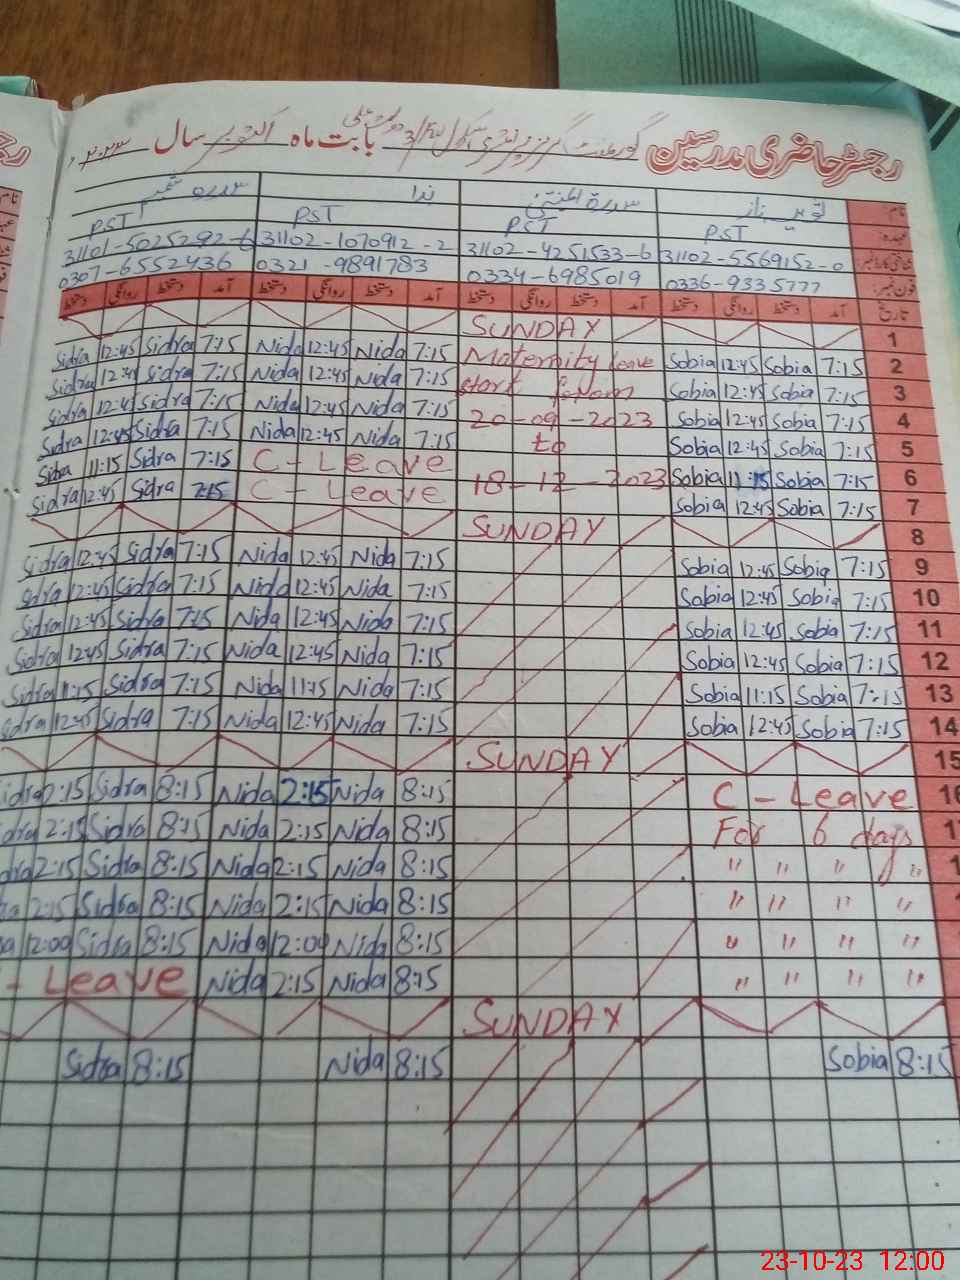 رجسٹر حاضری مدرسین گورنمنٹ گرلز پرائمری سکول بابت ماہ اکتوبر سال ۲۰۲۳ء
نام سدرہ ندا سدرۃ المنتہیٰ ناز
عہدہ PST PST PST PST
31101-5025292-6 31102-1070912-2 31102-4251533-6 31102-5569152-0
فون نمبر 0307-6552436 0321-9891783 0334-6985019 0336-9335777
تاریخ آمد دستخط روانگی دستخط آمد دستخط روانگی دستخط آمد دستخط روانگی دستخط آمد دستخط روانگی دستخط
SUNDAY 1
Sidra 12:45 Sidra 7:15 Nida 12:45 Nida 7:15 Maternity leave Sobia 12:45 Sobia 7:15 2
Sidra 12:45 Sidra 7:15 Nida 12:45 Nida 7:15 start from Sobia 12:45 Sobia 7:15 3
Sidra 12:45 Sidra 7:15 Nida 12:45 Nida 7:15 20-09-2023 Sobia 12:45 Sobia 7:15 4
Sidra 12:45 Sidra 7:15 Nida 12:45 Nida 7:15 to Sobia 12:45 Sobia 7:15 5
Sidra 11:15 Sidra 7:15 C-Leave 18-12-2023 Sobia 11:15 Sobia 7:15 6
Sidra 12:45 Sidra 7:15 C-Leave Sobia 12:45 Sobia 7:15 7
SUNDAY 8
Sidra 12:45 Sidra 7:15 Nida 12:45 Nida 7:15 Sobia 12:45 Sobia 7:15 9
Sidra 12:45 Sidra 7:15 Nida 12:45 Nida 7:15 Sobia 12:45 Sobia 7:15 10
Sidra 12:45 Sidra 7:15 Nida 12:45 Nida 7:15 Sobia 12:45 Sobia 7:15 11
Sidra 12:45 Sidra 7:15 Nida 12:45 Nida 7:15 Sobia 12:45 Sobia 7:15 12
Sidra 11:15 Sidra 7:15 Nida 11:15 Nida 7:15 Sobia 11:15 Sobia 7:15 13
Sidra 12:45 Sidra 7:15 Nida 12:45 Nida 7:15 Sobia 12:45 Sobia 7:15 14
SUNDAY 15
idra 2:15 Sidra 8:15 Nida 2:15 Nida 8:15 C-Leave 16
dra 2:15 Sidra 8:15 Nida 2:15 Nida 8:15 For 6 days 1
dra 2:15 Sidra 8:15 Nida 2:15 Nida 8:15 " " " " 1
ra 2:15 Sidra 8:15 Nida 2:15 Nida 8:15 " " " "
a 12:00 Sidra 8:15 Nida 12:00 Nida 8:15 " " " "
- Leave Nida 2:15 Nida 8:15 " " " "
SUNDAY
Sidra 8:15 Nida 8:15 Sobia 8:15
23-10-23 12:00